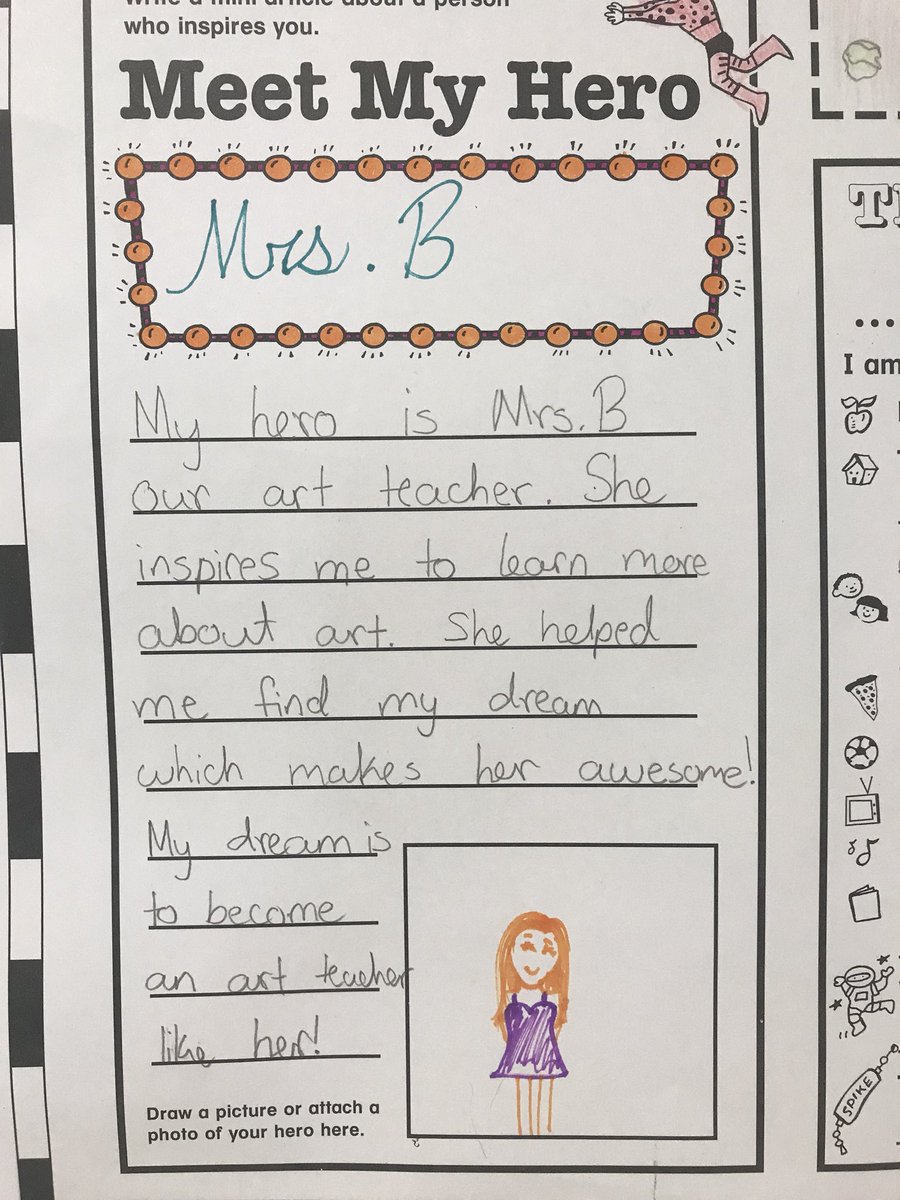 who inspires you.
Meet My Hero
Mrs. B
My hero is Mrs. B
our art teacher. She
inspires me to learn more
about art. She helped
me find my dream
which makes her awesome!
My dream is
to become
an art teacher
like her!
Draw a picture or attach a
photo of your hero here.
I am
SPIKE